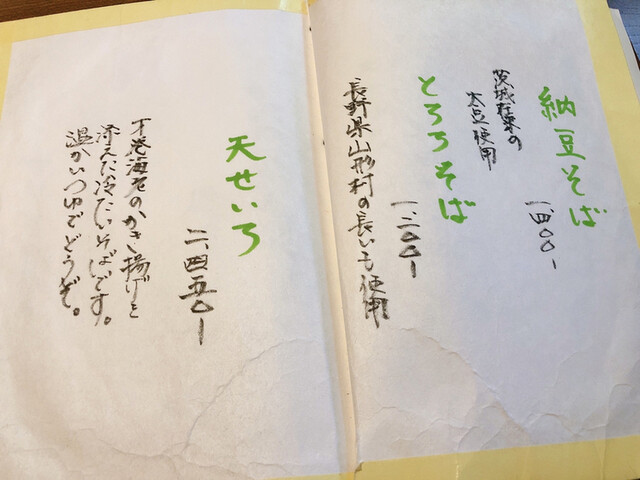 納豆そば
一、四〇〇ー
茨城在来の
大豆使用
とろろそば
一、二〇〇ー
長野県山形村の長いも使用
天せいろ
二、四五〇ー
才巻海老のかき揚げと
冷たいそばです。
温かいつゆでどうぞ。